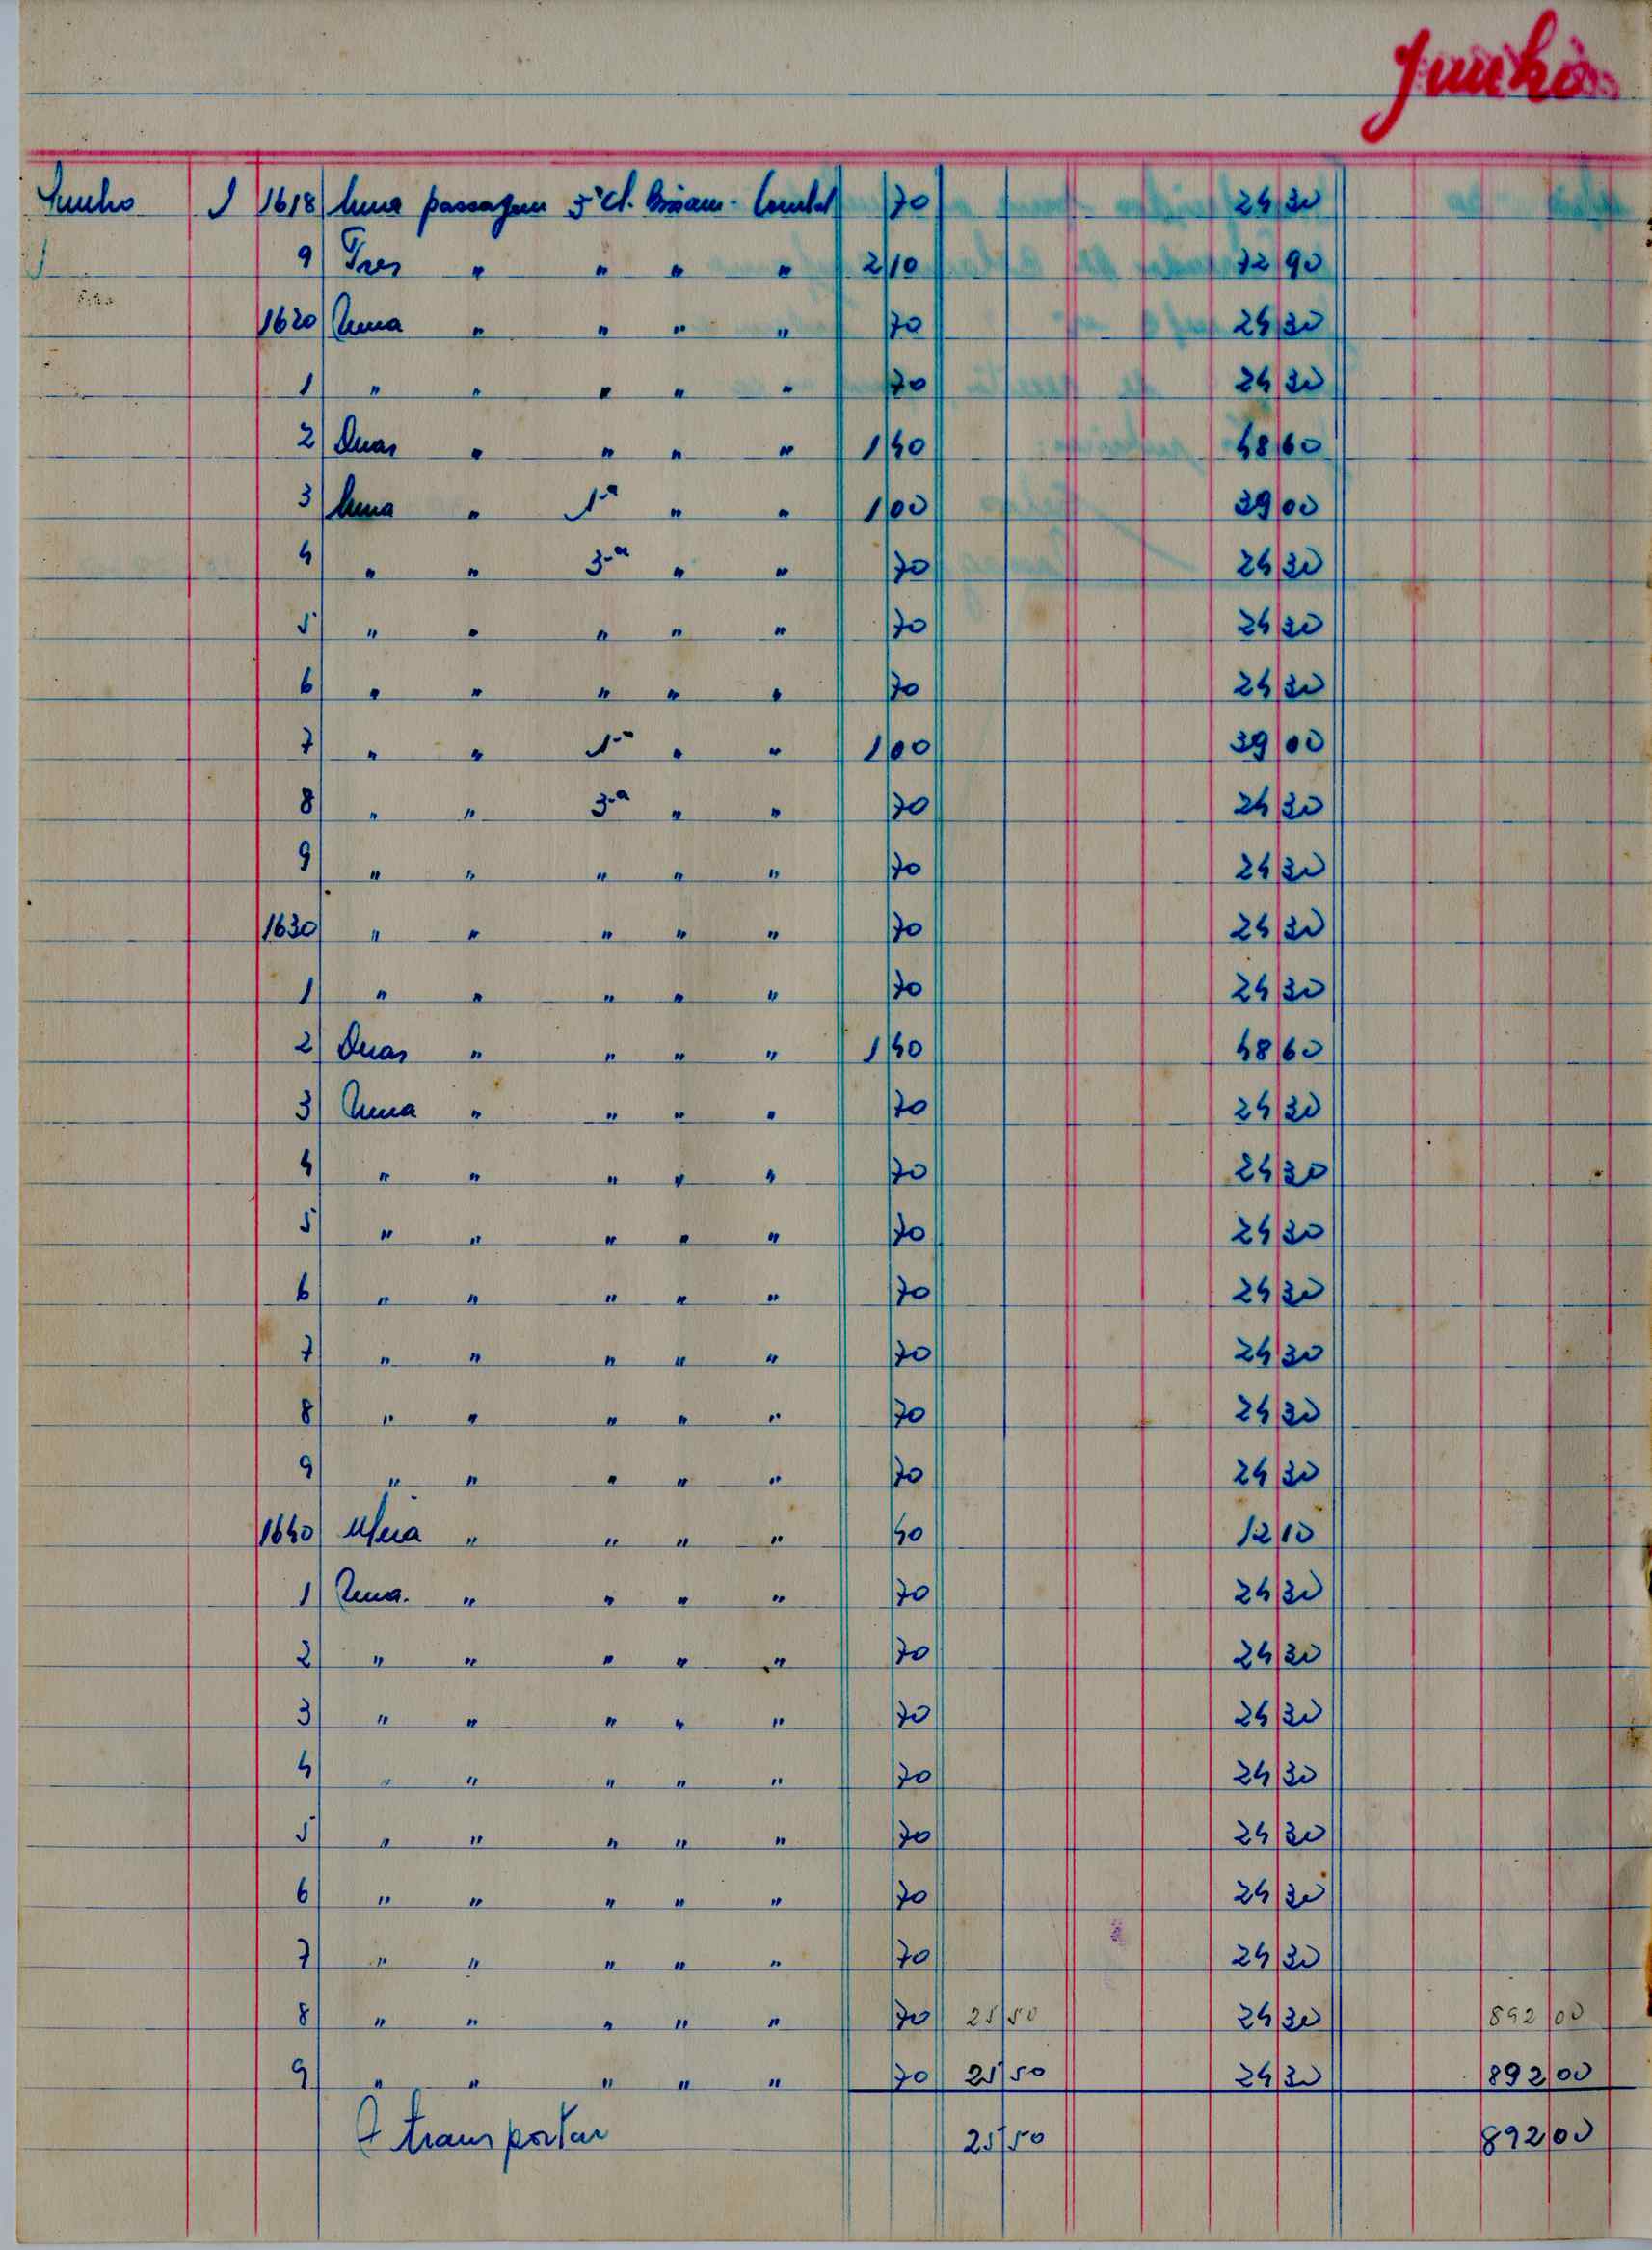 Junho
Junho 1 1618 Uma passagem 3ª cl. Bissau - 70 24 30
9 Tres " " " " 2 10 72 90
1620 Uma " " " " 70 24 30
1 " " " " " 70 24 30
2 Duas " " " " 1 40 48 60
3 Uma " 1ª " " 1 00 39 00
4 " " 3ª " " 70 24 30
5 " " " " " 70 24 30
6 " " " " " 70 24 30
7 " " 1ª " " 1 00 39 00
8 " " 3ª " " 70 24 30
9 " " " " " 70 24 30
1630 " " " " " 70 24 30
1 " " " " " 70 24 30
2 Duas " " " " 1 40 48 60
3 Uma " " " " 70 24 30
4 " " " " " 70 24 30
5 " " " " " 70 24 30
6 " " " " " 70 24 30
7 " " " " " 70 24 30
8 " " " " " 70 24 30
9 " " " " " 70 24 30
1640 Meia " " " " 40 12 10
1 Uma. " " " " 70 24 30
2 " " " " " 70 24 30
3 " " " " " 70 24 30
4 " " " " " 70 24 30
5 " " " " " 70 24 30
6 " " " " " 70 24 30
7 " " " " " 70 24 30
8 " " " " " 70 25 50 24 30 892 00
9 " " " " " 70 25 50 24 30 892 00
A transportar 25 50 892 00